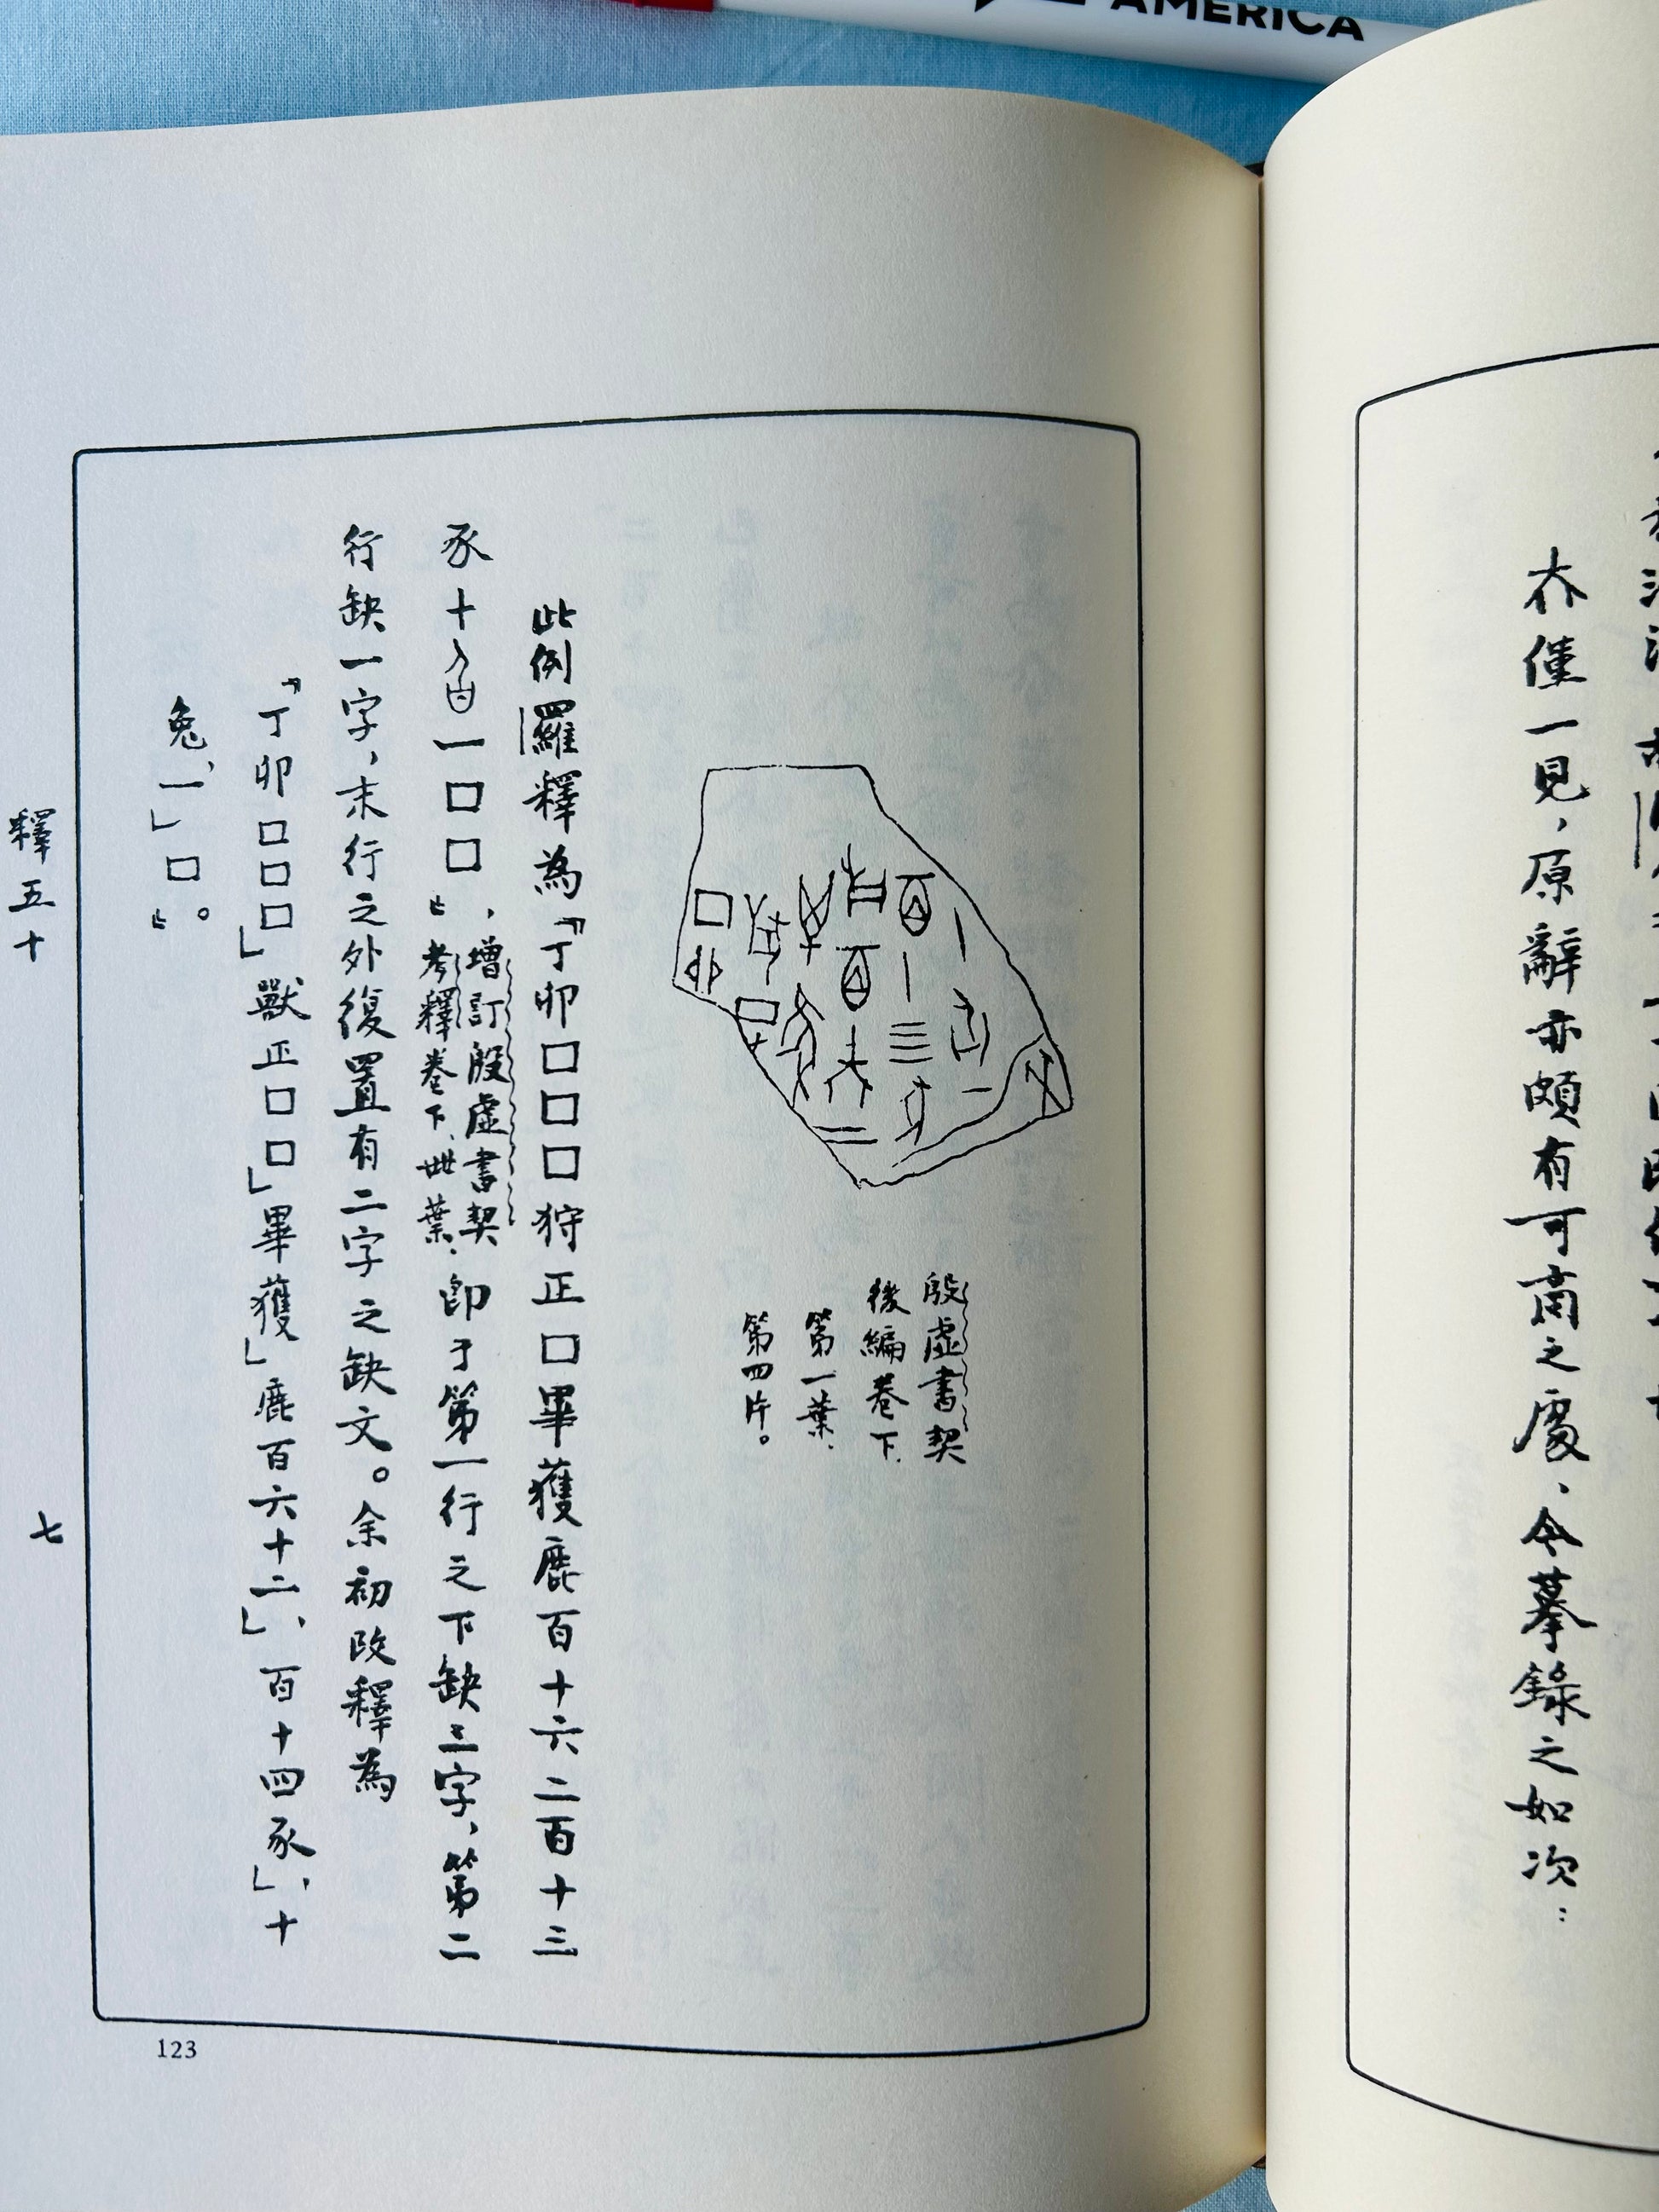 AMERICA
夰僅一見，原辭亦頗有可商之處，今摹錄之如次：
殷虛書契
後編卷下、
第一葉、
第四片。
此例羅釋為「丁卯口口口狩正口畢獲鹿百十六二百十三
豕十一口口」，
增訂殷虛書契
考釋卷下、卌葉、
卽于第一行之下缺三字，第二
行缺一字，末行之外復置有二字之缺文。余初改釋為
「丁卯口口口」獸正口口」畢獲」鹿百六十二」，百十四豕」，十
兔、一」口」。
釋五十
七
123